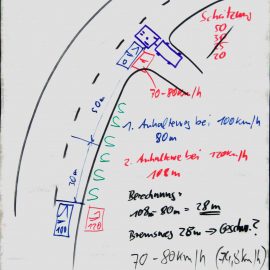 Schätzung
50
30
35
20
70-80km/h
50m
30m
1. Anhalteweg bei 100km/h
80m
2. Anhalteweg bei 120km/h
108m
100
120
Berechnung:
108m - 80m = 28m
Bremsweg 28m => Geschw.?
70-80km/h (74,8km/h)